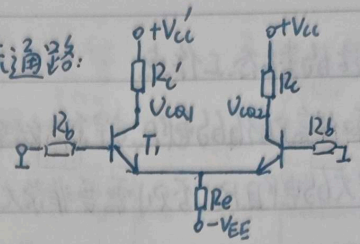 流通路:
+Vcc'
+Vcc
Rc'
Rc
UCQ1
UCQ2
Rb
T1
Rb
Re
-VEE